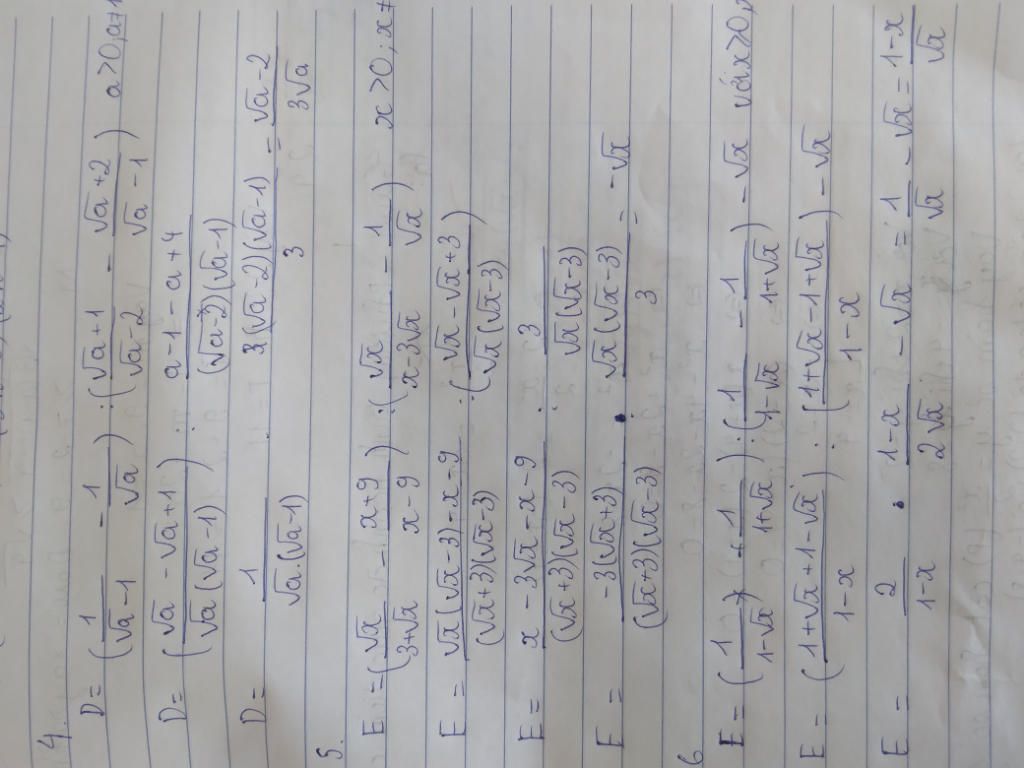 4.
D = (1/(√a-1) - 1/√a) : ((√a+1)/(√a-2) - (√a+2)/(√a-1)) a>0, a≠1
D = ((√a - √a+1)/(√a(√a-1))) : (a-1-a+4)/((√a-2)(√a-1))
D = 1/(√a.(√a-1)) . ((√a-2)(√a-1))/3 = (√a-2)/(3√a)
5.
E = (√x/(3+√x) - (x+9)/(x-9)) : (√x/(x-3√x) - 1/√x) x>0; x≠
E = (√x(√x-3)-x-9)/((√x+3)(√x-3)) : ((√x-√x+3)/(√x(√x-3)))
E = (x-3√x-x-9)/((√x+3)(√x-3)) : 3/(√x(√x-3))
E = (-3(√x+3))/((√x+3)(√x-3)) . (√x(√x-3))/3 = -√x
6
E = (1/(1-√x) + 1/(1+√x)) : (1/(1-√x) - 1/(1+√x)) - √x với x>0,
E = ((1+√x+1-√x)/(1-x)) : ((1+√x-1+√x)/(1-x)) - √x
E = 2/(1-x) . (1-x)/(2√x) - √x = 1/√x - √x = (1-x)/√x